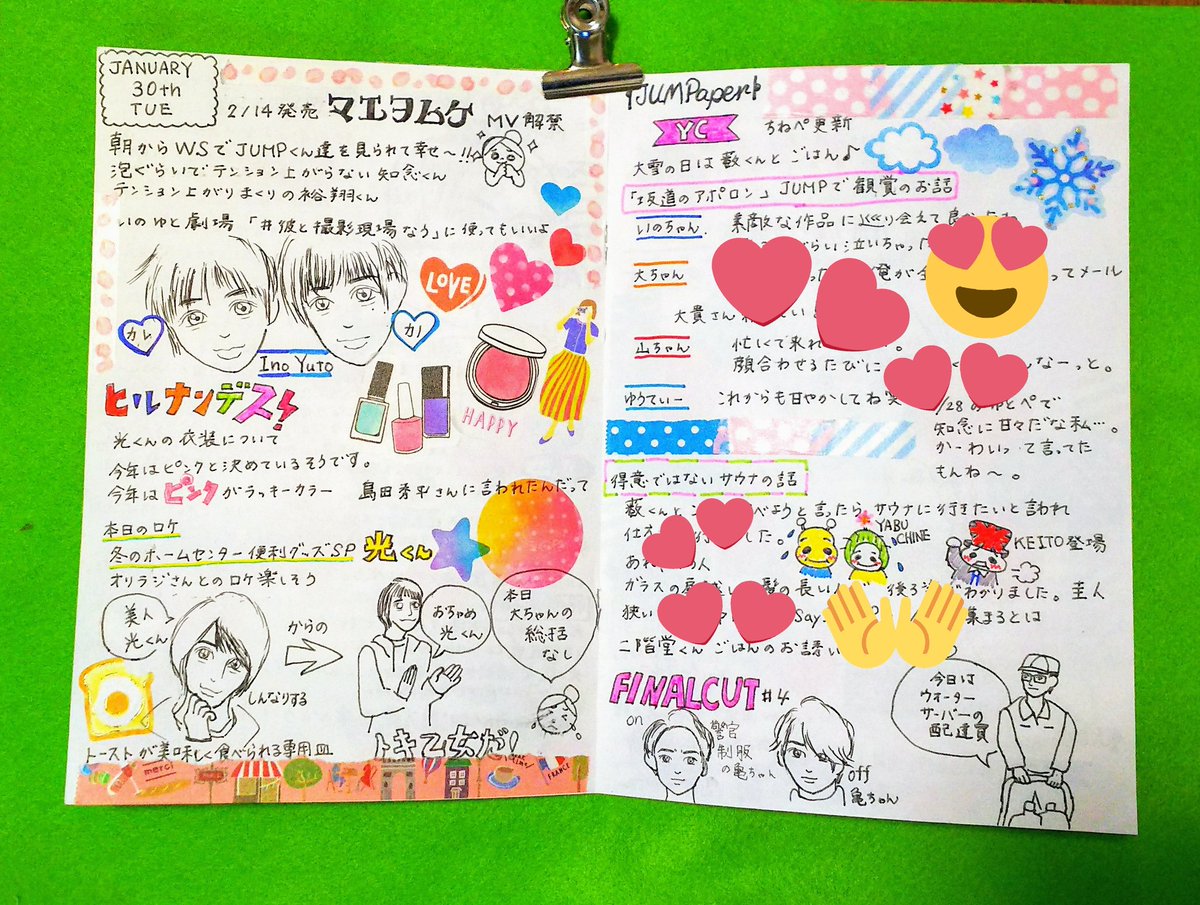 JANUARY
30th
TUE
2/14発売 マエヲムケ MV解禁
朝からWSでJUMPくん達を見られて幸せ〜!!
泡ぐらいでテンション上がらない知念くん
テンション上がりまくりの裕翔くん
いのゆと劇場「#彼と撮影現場なう」に使ってもいいよ
カレ
カレ
LOVE
Ino Yuto
HAPPY
ヒルナンデス!
光くんの衣装について
今年はピンクと決めているそうです。
今年はピンクがラッキーカラー 島田秀平さんに言われたんだって
本日のロケ
冬のホームセンター便利グッズSP 光くん
オリラジさんとのロケ楽しそう
美人
光くん
からの
おちゃめ
光くん
本日
大ちゃんの
総括
なし
しんなりする
トーストが美味しく食べられる専用皿
トキ乙女だ!
merci
FRANCE
JUMPaper
YC ちねぺ更新
大雪の日は薮くんとごはん♪
「坂道のアポロン」JUMPで観賞のお話
いのちゃん 素敵な作品に巡り会えて
ぐらい泣いちゃ
大ちゃん
ってメール
大貴さん
山ちゃん 忙しくて来れ
顔合わせるたびに
なーっと。
ゆうてぃー これからも甘やかしてね
1/28のゆとぺで
知念に甘々だな私…。
かーわいいって言ってた
もんね〜。
得意ではないサウナの話
薮くんと
べようと言ったらサウナに行きたいと言われ
した。
YABU
CHINE
KEITO登場
あれ
人
ガラスの
髪の長い
後ろ
わかりました。圭人
狭い
Say
集まるとは
二階堂くんごはんのお誘い
FINALCUT #4
on
警官
制服
の亀ちゃん
off
亀ちゃん
今日は
ウオーター
サーバーの
配達員